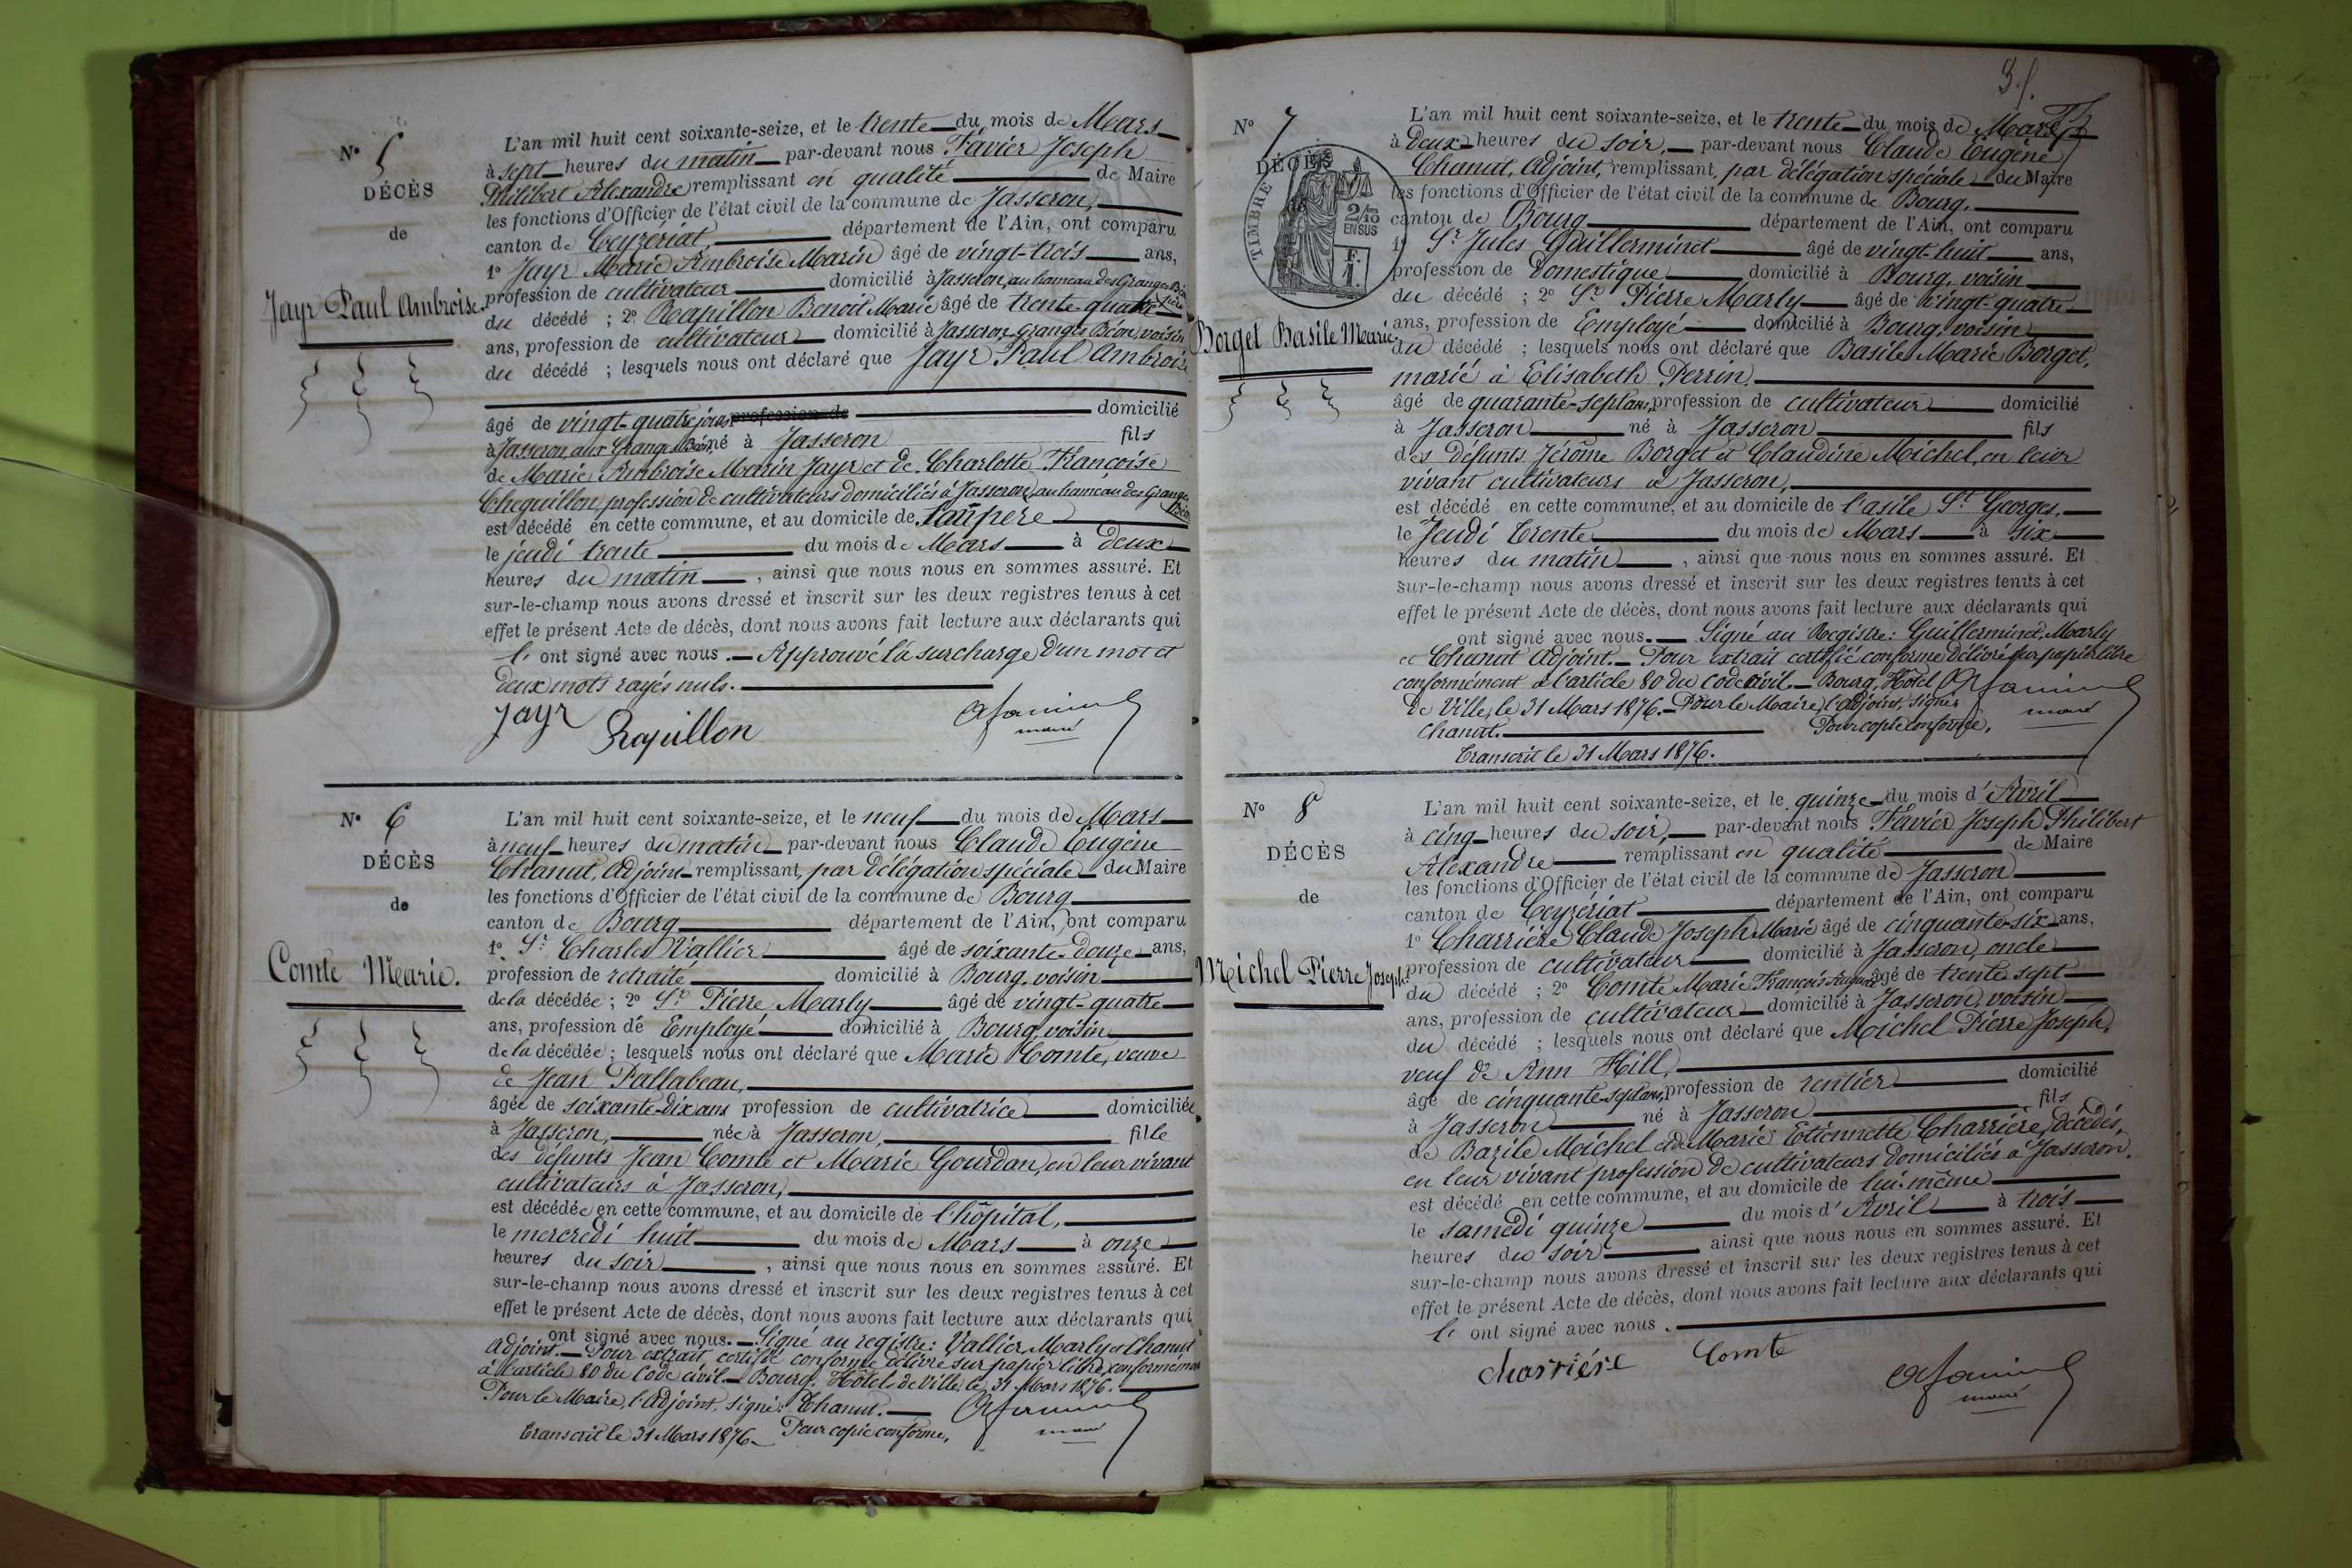 N° 5
DÉCÈS
de
Jayr Paul Ambroise.
L'an mil huit cent soixante-seize, et le trente du mois de Mars
à sept heures du matin par-devant nous Favier Joseph
Philibert Alexandre remplissant en qualité de Maire
les fonctions d'Officier de l'état civil de la commune de Jasseron,
canton de Ceyzériat, département de l'Ain, ont comparu
1° Jayr Marie Ambroise Marin âgé de vingt-trois ans,
profession de cultivateur domicilié à Jasseron, au hameau des Granges Béon père
du décédé ; 2° Rapillon Benoit Marie âgé de trente-quatre
ans, profession de cultivateur domicilié à Jasseron, Granges Béon, voisin
du décédé ; lesquels nous ont déclaré que Jayr Paul Ambroise
âgé de vingt-quatre jours profession de domicilié
à Jasseron, aux Granges Béon, né à Jasseron fils
de Marie Ambroise Marin Jayr et de Charlotte Françoise
Cheguillon, profession de cultivateurs domiciliés à Jasseron, au hameau des Granges Béon
est décédé en cette commune, et au domicile de son père
le jeudi trente du mois de Mars à deux
heures du matin, ainsi que nous nous en sommes assuré. Et
sur-le-champ nous avons dressé et inscrit sur les deux registres tenus à cet
effet le présent Acte de décès, dont nous avons fait lecture aux déclarants qui
l' ont signé avec nous. — Approuvé la surcharge d'un mot et
deux mots rayés nuls.
Jayr Rapillon
maire
N° 6
DÉCÈS
de
Comte Marie.
L'an mil huit cent soixante-seize, et le neuf du mois de Mars
à neuf heures du matin par-devant nous Claude Eugène
Chanut, Adjoint remplissant, par délégation spéciale du Maire
les fonctions d'Officier de l'état civil de la commune de Bourg
canton de Bourg département de l'Ain, ont comparu
1° Sr. Charles Vallier âgé de soixante-douze ans,
profession de retraité domicilié à Bourg, voisin
de la décédée ; 2° Sr. Pierre Marly âgé de vingt-quatre
ans, profession de Employé domicilié à Bourg, voisin
de la décédée ; lesquels nous ont déclaré que Marie Comte, veuve
de Jean Pallabeau,
âgée de soixante-dix ans profession de cultivatrice domiciliée
à Jasseron, née à Jasseron, fille
des défunts Jean Comte et Marie Gourdan, en leur vivant
cultivateurs à Jasseron,
est décédée en cette commune, et au domicile de l'hôpital,
le mercredi huit du mois de Mars à onze
heures du soir, ainsi que nous nous en sommes assuré. Et
sur-le-champ nous avons dressé et inscrit sur les deux registres tenus à cet
effet le présent Acte de décès, dont nous avons fait lecture aux déclarants qui
ont signé avec nous. — Signé au registre: Vallier, Marly et Chanut
Adjoint. — Pour extrait certifié conforme délivré sur papier libre, conformément
à l'article 80 du Code civil — Bourg, Hôtel de Ville, le 31 Mars 1876.
Pour le Maire, l'Adjoint, signé: Chanut.
Transcrit le 31 Mars 1876 — Pour copie conforme,
maire
N° 7
DÉCÈS
TIMBRE
2/10 EN SUS
F. 1.
Borget Basile Marie.
L'an mil huit cent soixante-seize, et le trente du mois de Mars
à deux heures du soir, par-devant nous Claude Eugène
Chanut, Adjoint, remplissant, par délégation spéciale du Maire
les fonctions d'Officier de l'état civil de la commune de Bourg.
canton de Bourg département de l'Ain, ont comparu
1° Sr. Jules Guillerminet âgé de vingt-huit ans,
profession de domestique domicilié à Bourg, voisin
du décédé ; 2° Sr. Pierre Marly âgé de vingt-quatre
ans, profession de Employé domicilié à Bourg, voisin
du décédé ; lesquels nous ont déclaré que Basile Marie Borget,
marié à Elisabeth Perrin,
âgé de quarante-sept ans, profession de cultivateur domicilié
à Jasseron né à Jasseron fils
des défunts Jérôme Borget et Claudine Michel, en leur
vivant cultivateurs à Jasseron,
est décédé en cette commune, et au domicile de l'asile St. Georges,
le Jeudi trente du mois de Mars à six
heures du matin, ainsi que nous nous en sommes assuré. Et
sur-le-champ nous avons dressé et inscrit sur les deux registres tenus à cet
effet le présent Acte de décès, dont nous avons fait lecture aux déclarants qui
ont signé avec nous. — Signé au Registre: Guillerminet, Marly
et Chanut Adjoint. — Pour extrait certifié conforme délivré sur papier libre
conformément à l'article 80 du Code civil. — Bourg, Hôtel
de Ville, le 31 Mars 1876. — Pour le Maire, l'Adjoint, signé:
Chanut. Pour copie conforme,
maire
Transcrit le 31 Mars 1876.
N° 8
DÉCÈS
de
Michel Pierre Joseph.
L'an mil huit cent soixante-seize, et le quinze du mois d'Avril
à cinq heures du soir, par-devant nous Favier Joseph Philibert
Alexandre remplissant en qualité de Maire
les fonctions d'Officier de l'état civil de la commune de Jasseron
canton de Ceyzériat département de l'Ain, ont comparu
1° Charrière Claude Joseph Marie âgé de cinquante-six ans,
profession de cultivateur domicilié à Jasseron, oncle
du décédé ; 2° Comte Marie François Auguste âgé de trente sept
ans, profession de cultivateur domicilié à Jasseron, voisin
du décédé ; lesquels nous ont déclaré que Michel Pierre Joseph,
veuf de Ann Hill,
âgé de cinquante-sept ans, profession de rentier domicilié
à Jasseron né à Jasseron fils
de Bazile Michel et de Marie Etiennette Charrière, décédés,
en leur vivant profession de cultivateurs domiciliés à Jasseron.
est décédé en cette commune, et au domicile de lui-même
le samedi quinze du mois d'Avril à trois
heures du soir ainsi que nous nous en sommes assuré. Et
sur-le-champ nous avons dressé et inscrit sur les deux registres tenus à cet
effet le présent Acte de décès, dont nous avons fait lecture aux déclarants qui
l' ont signé avec nous.
charriére Comte
maire